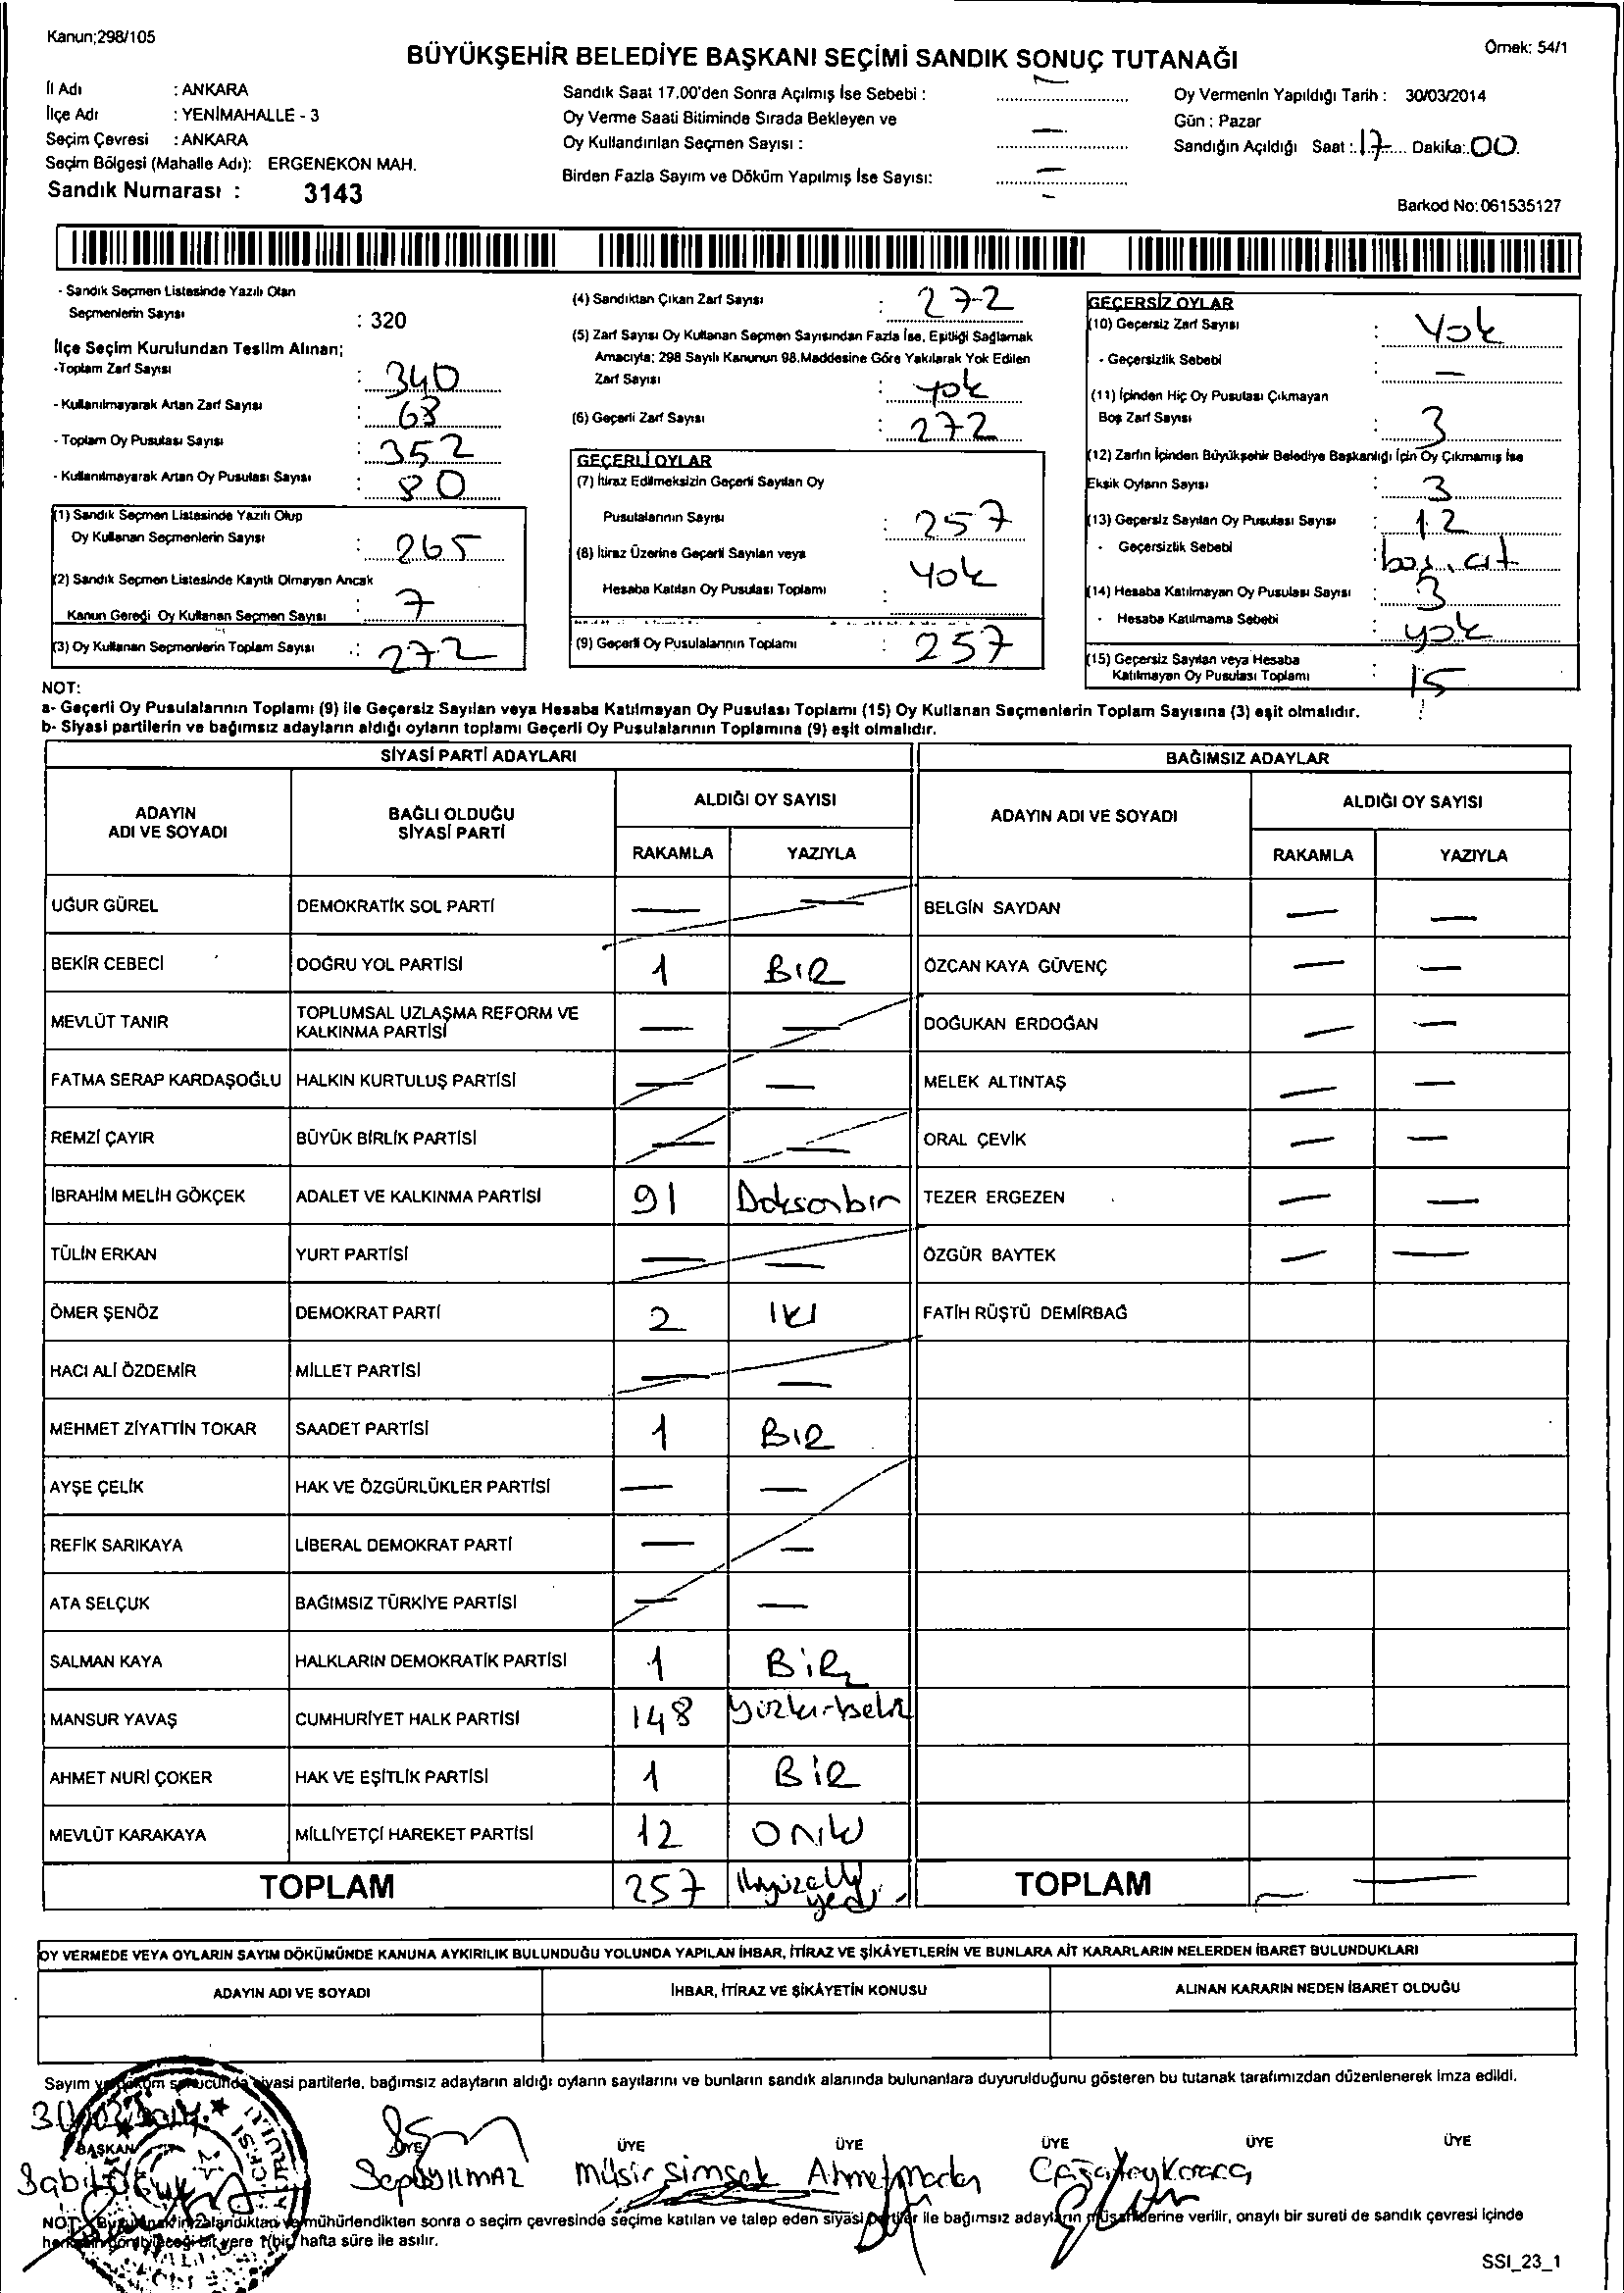 Kanun;298/105
Örnek: 54/1
BÜYÜKŞEHİR BELEDİYE BAŞKANI SEÇİMİ SANDIK SONUÇ TUTANAĞI
İl Adı : ANKARA
İlçe Adı : YENİMAHALLE - 3
Seçim Çevresi : ANKARA
Seçim Bölgesi (Mahalle Adı): ERGENEKON MAH.
Sandık Numarası : 3143
Sandık Saat 17.00'den Sonra Açılmış İse Sebebi : —
Oy Verme Saati Bitiminde Sırada Bekleyen ve
Oy Kullandırılan Seçmen Sayısı : —
Birden Fazla Sayım ve Döküm Yapılmış İse Sayısı: —
Oy Vermenin Yapıldığı Tarih : 30/03/2014
Gün : Pazar
Sandığın Açıldığı Saat : 17 Dakika: 00
Barkod No:061535127
- Sandık Seçmen Listesinde Yazılı Olan
Seçmenlerin Sayısı : 320
İlçe Seçim Kurulundan Teslim Alınan;
-Toplam Zarf Sayısı : 340
- Kullanılmayarak Artan Zarf Sayısı : 68
- Toplam Oy Pusulası Sayısı : 352
- Kullanılmayarak Artan Oy Pusulası Sayısı : 80
(1) Sandık Seçmen Listesinde Yazılı Olup
Oy Kullanan Seçmenlerin Sayısı : 265
(2) Sandık Seçmen Listesinde Kayıtlı Olmayan Ancak
Kanun Gereği Oy Kullanan Seçmen Sayısı : 7
(3) Oy Kullanan Seçmenlerin Toplam Sayısı : 272
(4) Sandıktan Çıkan Zarf Sayısı : 272
(5) Zarf Sayısı Oy Kullanan Seçmen Sayısından Fazla İse, Eşitliği Sağlamak
Amacıyla; 298 Sayılı Kanunun 98.Maddesine Göre Yakılarak Yok Edilen
Zarf Sayısı : yok
(6) Geçerli Zarf Sayısı : 272
GEÇERLİ OYLAR
(7) İtiraz Edilmeksizin Geçerli Sayılan Oy
Pusulalarının Sayısı : 257
(8) İtiraz Üzerine Geçerli Sayılan veya
Hesaba Katılan Oy Pusulası Toplamı : Yok
(9) Geçerli Oy Pusulalarının Toplamı : 257
GEÇERSİZ OYLAR
(10) Geçersiz Zarf Sayısı : Yok
- Geçersizlik Sebebi : —
(11) İçinden Hiç Oy Pusulası Çıkmayan
Boş Zarf Sayısı : 3
(12) Zarfın İçinden Büyükşehir Belediye Başkanlığı İçin Oy Çıkmamış İse
Eksik Oyların Sayısı : 3
(13) Geçersiz Sayılan Oy Pusulası Sayısı : 12
- Geçersizlik Sebebi : boş, çift
(14) Hesaba Katılmayan Oy Pusulası Sayısı : 3
- Hesaba Katılmama Sebebi : yok
(15) Geçersiz Sayılan veya Hesaba
Katılmayan Oy Pusulası Toplamı : 15
NOT:
a- Geçerli Oy Pusulalarının Toplamı (9) ile Geçersiz Sayılan veya Hesaba Katılmayan Oy Pusulası Toplamı (15) Oy Kullanan Seçmenlerin Toplam Sayısına (3) eşit olmalıdır.
b- Siyasi partilerin ve bağımsız adayların aldığı oyların toplamı Geçerli Oy Pusulalarının Toplamına (9) eşit olmalıdır.
SİYASİ PARTİ ADAYLARI BAĞIMSIZ ADAYLAR
ADAYIN ADI VE SOYADI BAĞLI OLDUĞU SİYASİ PARTİ ALDIĞI OY SAYISI ADAYIN ADI VE SOYADI ALDIĞI OY SAYISI
RAKAMLA YAZIYLA RAKAMLA YAZIYLA
UĞUR GÜREL DEMOKRATİK SOL PARTİ — — BELGİN SAYDAN — —
BEKİR CEBECİ DOĞRU YOL PARTİSİ 1 BIR ÖZCAN KAYA GÜVENÇ — —
MEVLÜT TANIR TOPLUMSAL UZLAŞMA REFORM VE KALKINMA PARTİSİ — — DOĞUKAN ERDOĞAN — —
FATMA SERAP KARDAŞOĞLU HALKIN KURTULUŞ PARTİSİ — — MELEK ALTINTAŞ — —
REMZİ ÇAYIR BÜYÜK BİRLİK PARTİSİ — — ORAL ÇEVİK — —
İBRAHİM MELİH GÖKÇEK ADALET VE KALKINMA PARTİSİ 91 Doksanbir TEZER ERGEZEN — —
TÜLİN ERKAN YURT PARTİSİ — — ÖZGÜR BAYTEK — —
ÖMER ŞENÖZ DEMOKRAT PARTİ 2 IKI FATİH RÜŞTÜ DEMİRBAĞ
HACI ALİ ÖZDEMİR MİLLET PARTİSİ — —
MEHMET ZİYATTİN TOKAR SAADET PARTİSİ 1 BIR
AYŞE ÇELİK HAK VE ÖZGÜRLÜKLER PARTİSİ — —
REFİK SARIKAYA LİBERAL DEMOKRAT PARTİ — —
ATA SELÇUK BAĞIMSIZ TÜRKİYE PARTİSİ — —
SALMAN KAYA HALKLARIN DEMOKRATİK PARTİSİ 1 BİR
MANSUR YAVAŞ CUMHURİYET HALK PARTİSİ 148
AHMET NURİ ÇOKER HAK VE EŞİTLİK PARTİSİ 1 BİR
MEVLÜT KARAKAYA MİLLİYETÇİ HAREKET PARTİSİ 12 Oniki
TOPLAM 257 İkiyüzelli yedi TOPLAM — —
OY VERMEDE VEYA OYLARIN SAYIM DÖKÜMÜNDE KANUNA AYKIRILIK BULUNDUĞU YOLUNDA YAPILAN İHBAR, İTİRAZ VE ŞİKÂYETLERİN VE BUNLARA AİT KARARLARIN NELERDEN İBARET BULUNDUKLARI
ADAYIN ADI VE SOYADI İHBAR, İTİRAZ VE ŞİKÂYETİN KONUSU ALINAN KARARIN NEDEN İBARET OLDUĞU
Sayım ve döküm sonucunda siyasi partilerle, bağımsız adayların aldığı oyların sayılarını ve bunların sandık alanında bulunanlara duyurulduğunu gösteren bu tutanak tarafımızdan düzenlenerek imza edildi.
BAŞKAN ÜYE ÜYE ÜYE ÜYE ÜYE ÜYE
YILMAZ Müsir Şimşek Ahmet
NOT: Bu tutanak imzalandıktan ve mühürlendikten sonra o seçim çevresinde seçime katılan ve talep eden siyasi partiler ile bağımsız adayların müşahitlerine verilir, onaylı bir sureti de sandık çevresi içinde
herkesin görebileceği bir yere 1(bir) hafta süre ile asılır.
SSI_23_1